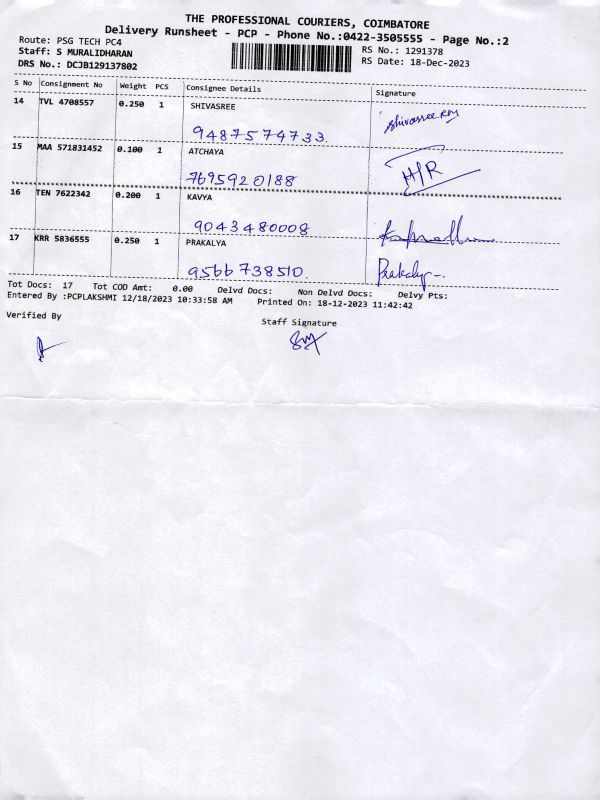 THE PROFESSIONAL COURIERS, COIMBATORE
Delivery Runsheet - PCP - Phone No.:0422-3505555 - Page No.:2
Route: PSG TECH PC4
Staff: S MURALIDHARAN
DRS No.: DCJB129137802
RS No.: 1291378
RS Date: 18-Dec-2023
S No Consignment No Weight PCS Consignee Details Signature
14 TVL 4708557 0.250 1 SHIVASREE
9487574733. Shivasree RM
15 MAA 571831452 0.100 1 ATCHAYA
7695920188 H/R
16 TEN 7622342 0.200 1 KAVYA
9043480008
17 KRR 5836555 0.250 1 PRAKALYA
9566738510. Prakalya
Tot Docs: 17 Tot COD Amt: 0.00 Delvd Docs: Non Delvd Docs: Delvy Pts:
Entered By :PCPLAKSHMI 12/18/2023 10:33:58 AM Printed On: 18-12-2023 11:42:42
Verified By
Staff Signature